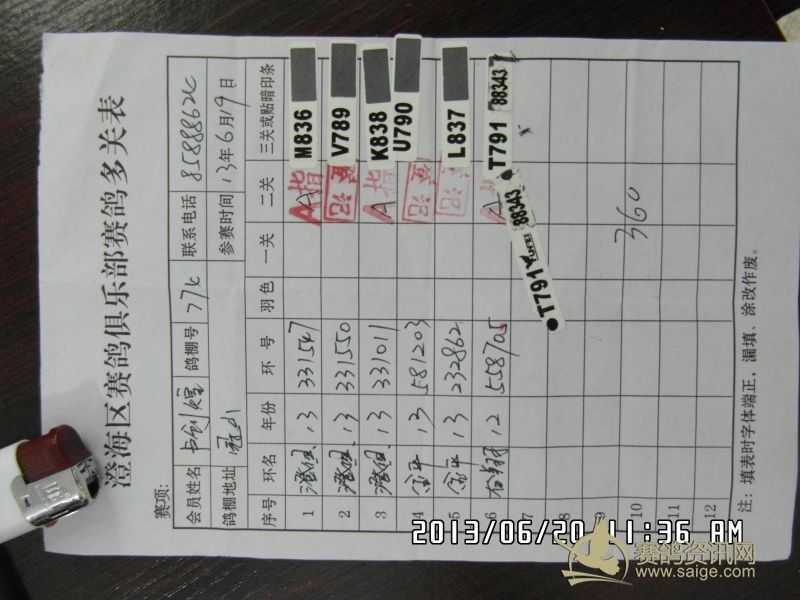 澄海区赛鸽俱乐部赛鸽多关表
赛项:
会员姓名 鸽棚号 联系电话 85888626
鸽棚地址 参赛时间 13年6月19日
序号 环名 年份 环号 羽色 一关 二关 三关或贴暗印条
1 13 331547 A指 M836
2 13 331550 V789
3 13 331011 A指 K838
4 13 581203 U790
5 13 232862 L837
6 12 558705 A T791 88343
T791 88343
7
8
9
10 360
11
12
注:填表时字体端正,漏填、涂改作废。
2013/06/20 11:36 AM
赛鸽资讯网
www.saige.com